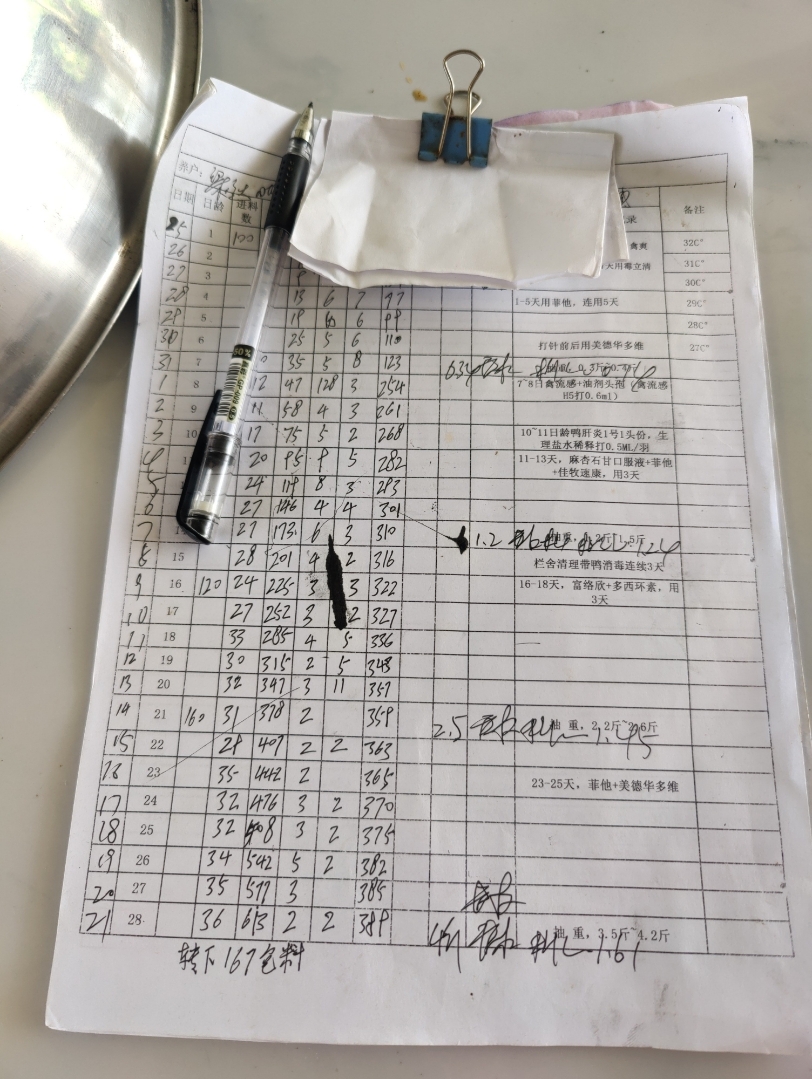 养户：
日期 日龄 进料数 录 备注
25 1 120 禽爽 32C°
26 2 天用毒立清 31C°
27 3 30C°
28 4 13 6 7 97 1-5天用菲他，连用5天 29C°
29 5 6 6 28C°
30 6 25 5 6 110 打针前后用美德华多维 27C°
31 7 35 5 8 123
1 8 12 47 128 3 254 7~8日禽流感+油剂头孢（禽流感H5打0.6ml）
2 9 11 58 4 3 261
3 10 17 75 5 2 268 10~11日龄鸭肝炎1号1头份，生理盐水稀释打0.5ML/羽
4 20 95 9 5 282 11-13天，麻杏石甘口服液+菲他+佳牧速康，用3天
5 24 119 8 3 293
6 27 146 4 4 301
7 27 173 6 3 310 1.2
8 15 28 201 4 2 316 栏舍清理带鸭消毒连续3天
9 16 120 24 225 3 3 322 16-18天，富络欣+多西环素，用3天
10 17 27 252 3 2 327
11 18 33 285 4 5 336
12 19 30 315 2 5 343
13 20 32 347 3 11 357
14 21 160 31 378 2 359 2.5 重，2.2斤~2.6斤
15 22 29 407 2 2 363
16 23 35 442 2 365 23-25天，菲他+美德华多维
17 24 32 476 3 2 370
18 25 32 508 3 2 375
19 26 34 542 5 2 382
20 27 35 577 3 385
21 28 36 613 2 2 389 重，3.5斤~4.2斤 1.61
转下167包料